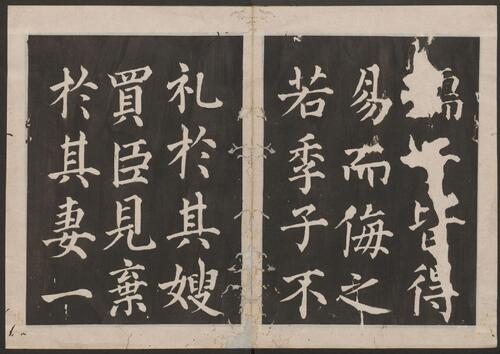 皆得
易而侮之
若季子不
礼於其嫂
買臣見棄
於其妻一